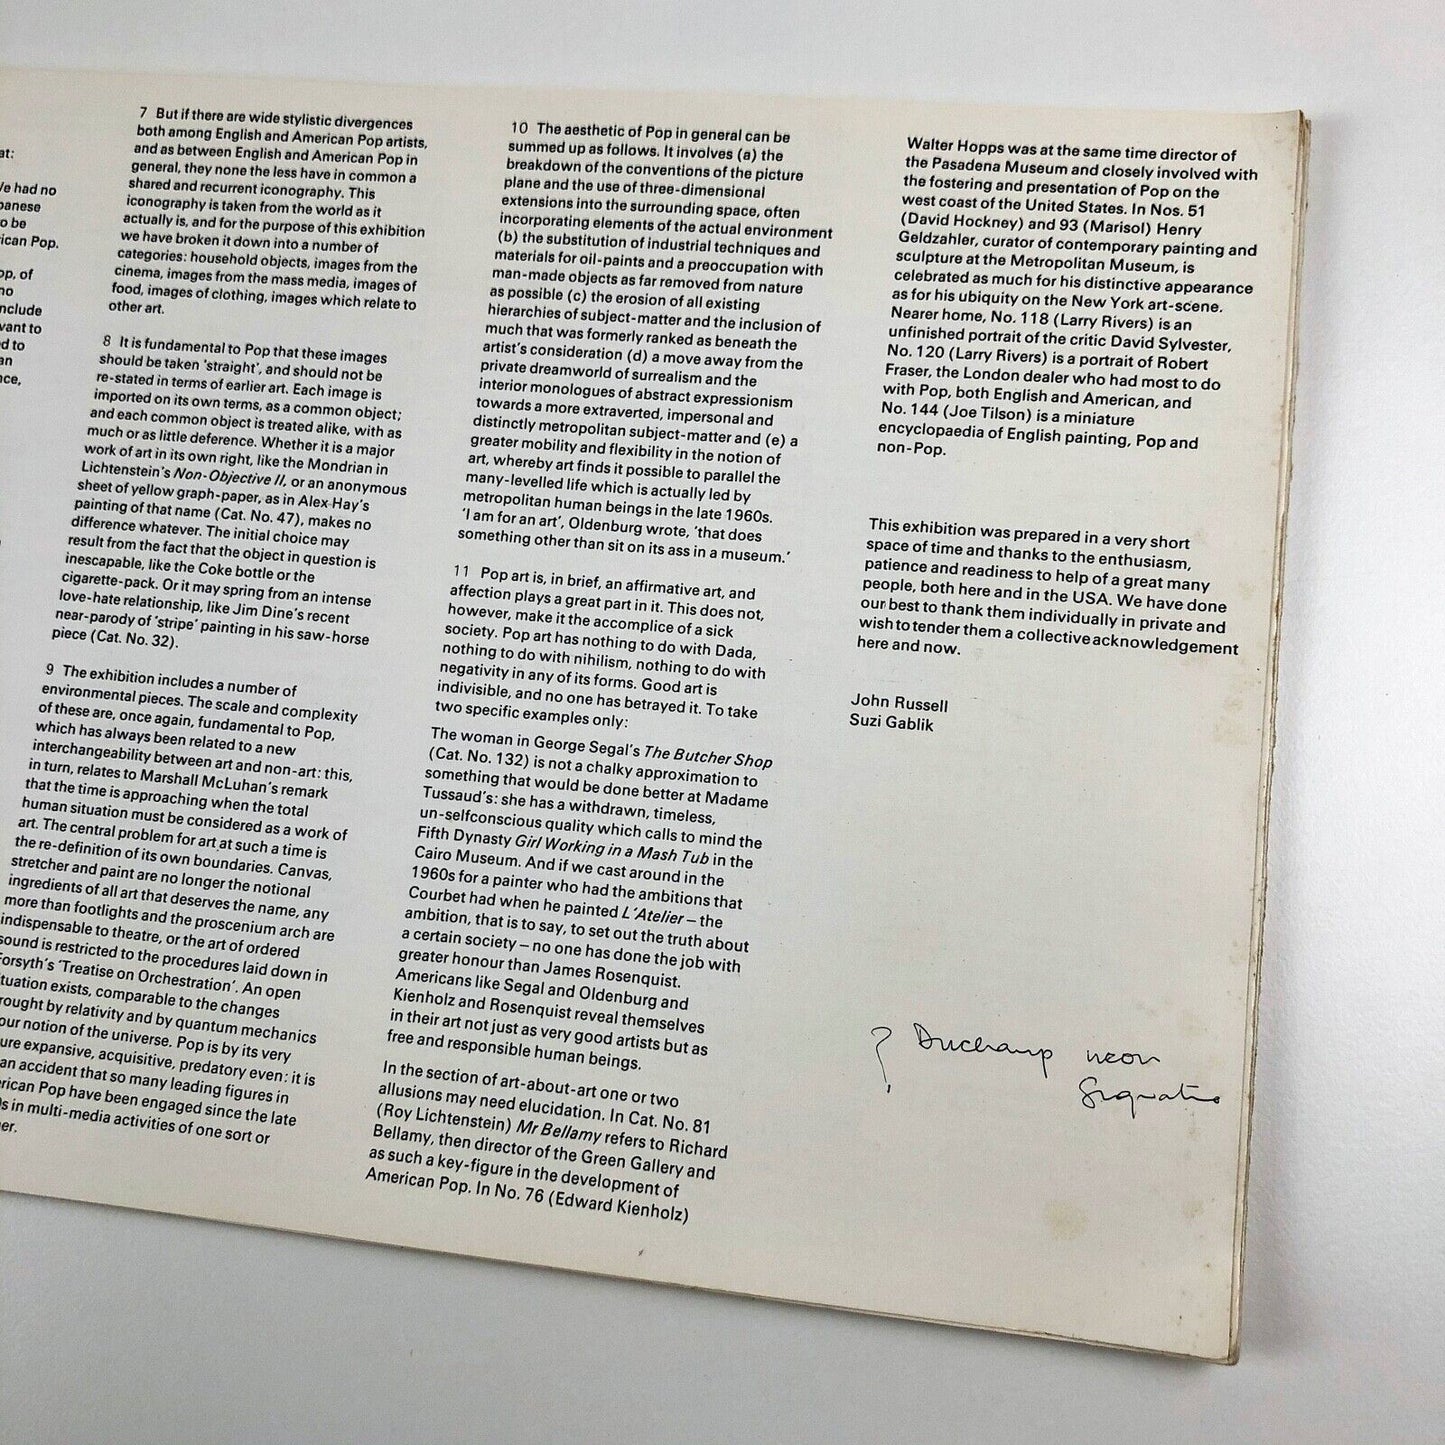 at:
We had no
panese
to be
ican Pop.
op, of
no
nclude
want to
d to
an
nce,
7 But if there are wide stylistic divergences
both among English and American Pop artists,
and as between English and American Pop in
general, they none the less have in common a
shared and recurrent iconography. This
iconography is taken from the world as it
actually is, and for the purpose of this exhibition
we have broken it down into a number of
categories: household objects, images from the
cinema, images from the mass media, images of
food, images of clothing, images which relate to
other art.
8 It is fundamental to Pop that these images
should be taken 'straight', and should not be
re-stated in terms of earlier art. Each image is
imported on its own terms, as a common object;
and each common object is treated alike, with as
much or as little deference. Whether it is a major
work of art in its own right, like the Mondrian in
Lichtenstein's Non-Objective II, or an anonymous
sheet of yellow graph-paper, as in Alex Hay's
painting of that name (Cat. No. 47), makes no
difference whatever. The initial choice may
result from the fact that the object in question is
inescapable, like the Coke bottle or the
cigarette-pack. Or it may spring from an intense
love-hate relationship, like Jim Dine's recent
near-parody of 'stripe' painting in his saw-horse
piece (Cat. No. 32).
9 The exhibition includes a number of
environmental pieces. The scale and complexity
of these are, once again, fundamental to Pop,
which has always been related to a new
interchangeability between art and non-art: this,
in turn, relates to Marshall McLuhan's remark
that the time is approaching when the total
human situation must be considered as a work of
art. The central problem for art at such a time is
the re-definition of its own boundaries. Canvas,
stretcher and paint are no longer the notional
ingredients of all art that deserves the name, any
more than footlights and the proscenium arch are
indispensable to theatre, or the art of ordered
sound is restricted to the procedures laid down in
Forsyth's 'Treatise on Orchestration'. An open
tuation exists, comparable to the changes
rought by relativity and by quantum mechanics
our notion of the universe. Pop is by its very
ure expansive, acquisitive, predatory even: it is
an accident that so many leading figures in
erican Pop have been engaged since the late
0s in multi-media activities of one sort or
er.
10 The aesthetic of Pop in general can be
summed up as follows. It involves (a) the
breakdown of the conventions of the picture
plane and the use of three-dimensional
extensions into the surrounding space, often
incorporating elements of the actual environment
(b) the substitution of industrial techniques and
materials for oil-paints and a preoccupation with
man-made objects as far removed from nature
as possible (c) the erosion of all existing
hierarchies of subject-matter and the inclusion of
much that was formerly ranked as beneath the
artist's consideration (d) a move away from the
private dreamworld of surrealism and the
interior monologues of abstract expressionism
towards a more extraverted, impersonal and
distinctly metropolitan subject-matter and (e) a
greater mobility and flexibility in the notion of
art, whereby art finds it possible to parallel the
many-levelled life which is actually led by
metropolitan human beings in the late 1960s.
'I am for an art', Oldenburg wrote, 'that does
something other than sit on its ass in a museum.'
11 Pop art is, in brief, an affirmative art, and
affection plays a great part in it. This does not,
however, make it the accomplice of a sick
society. Pop art has nothing to do with Dada,
nothing to do with nihilism, nothing to do with
negativity in any of its forms. Good art is
indivisible, and no one has betrayed it. To take
two specific examples only:
The woman in George Segal's The Butcher Shop
(Cat. No. 132) is not a chalky approximation to
something that would be done better at Madame
Tussaud's: she has a withdrawn, timeless,
un-selfconscious quality which calls to mind the
Fifth Dynasty Girl Working in a Mash Tub in the
Cairo Museum. And if we cast around in the
1960s for a painter who had the ambitions that
Courbet had when he painted L'Atelier – the
ambition, that is to say, to set out the truth about
a certain society – no one has done the job with
greater honour than James Rosenquist.
Americans like Segal and Oldenburg and
Kienholz and Rosenquist reveal themselves
in their art not just as very good artists but as
free and responsible human beings.
In the section of art-about-art one or two
allusions may need elucidation. In Cat. No. 81
(Roy Lichtenstein) Mr Bellamy refers to Richard
Bellamy, then director of the Green Gallery and
as such a key-figure in the development of
American Pop. In No. 76 (Edward Kienholz)
Walter Hopps was at the same time director of
the Pasadena Museum and closely involved with
the fostering and presentation of Pop on the
west coast of the United States. In Nos. 51
(David Hockney) and 93 (Marisol) Henry
Geldzahler, curator of contemporary painting and
sculpture at the Metropolitan Museum, is
celebrated as much for his distinctive appearance
as for his ubiquity on the New York art-scene.
Nearer home, No. 118 (Larry Rivers) is an
unfinished portrait of the critic David Sylvester,
No. 120 (Larry Rivers) is a portrait of Robert
Fraser, the London dealer who had most to do
with Pop, both English and American, and
No. 144 (Joe Tilson) is a miniature
encyclopaedia of English painting, Pop and
non-Pop.
This exhibition was prepared in a very short
space of time and thanks to the enthusiasm,
patience and readiness to help of a great many
people, both here and in the USA. We have done
our best to thank them individually in private and
wish to tender them a collective acknowledgement
here and now.
John Russell
Suzi Gablik
? Duchamp neon
Signatu